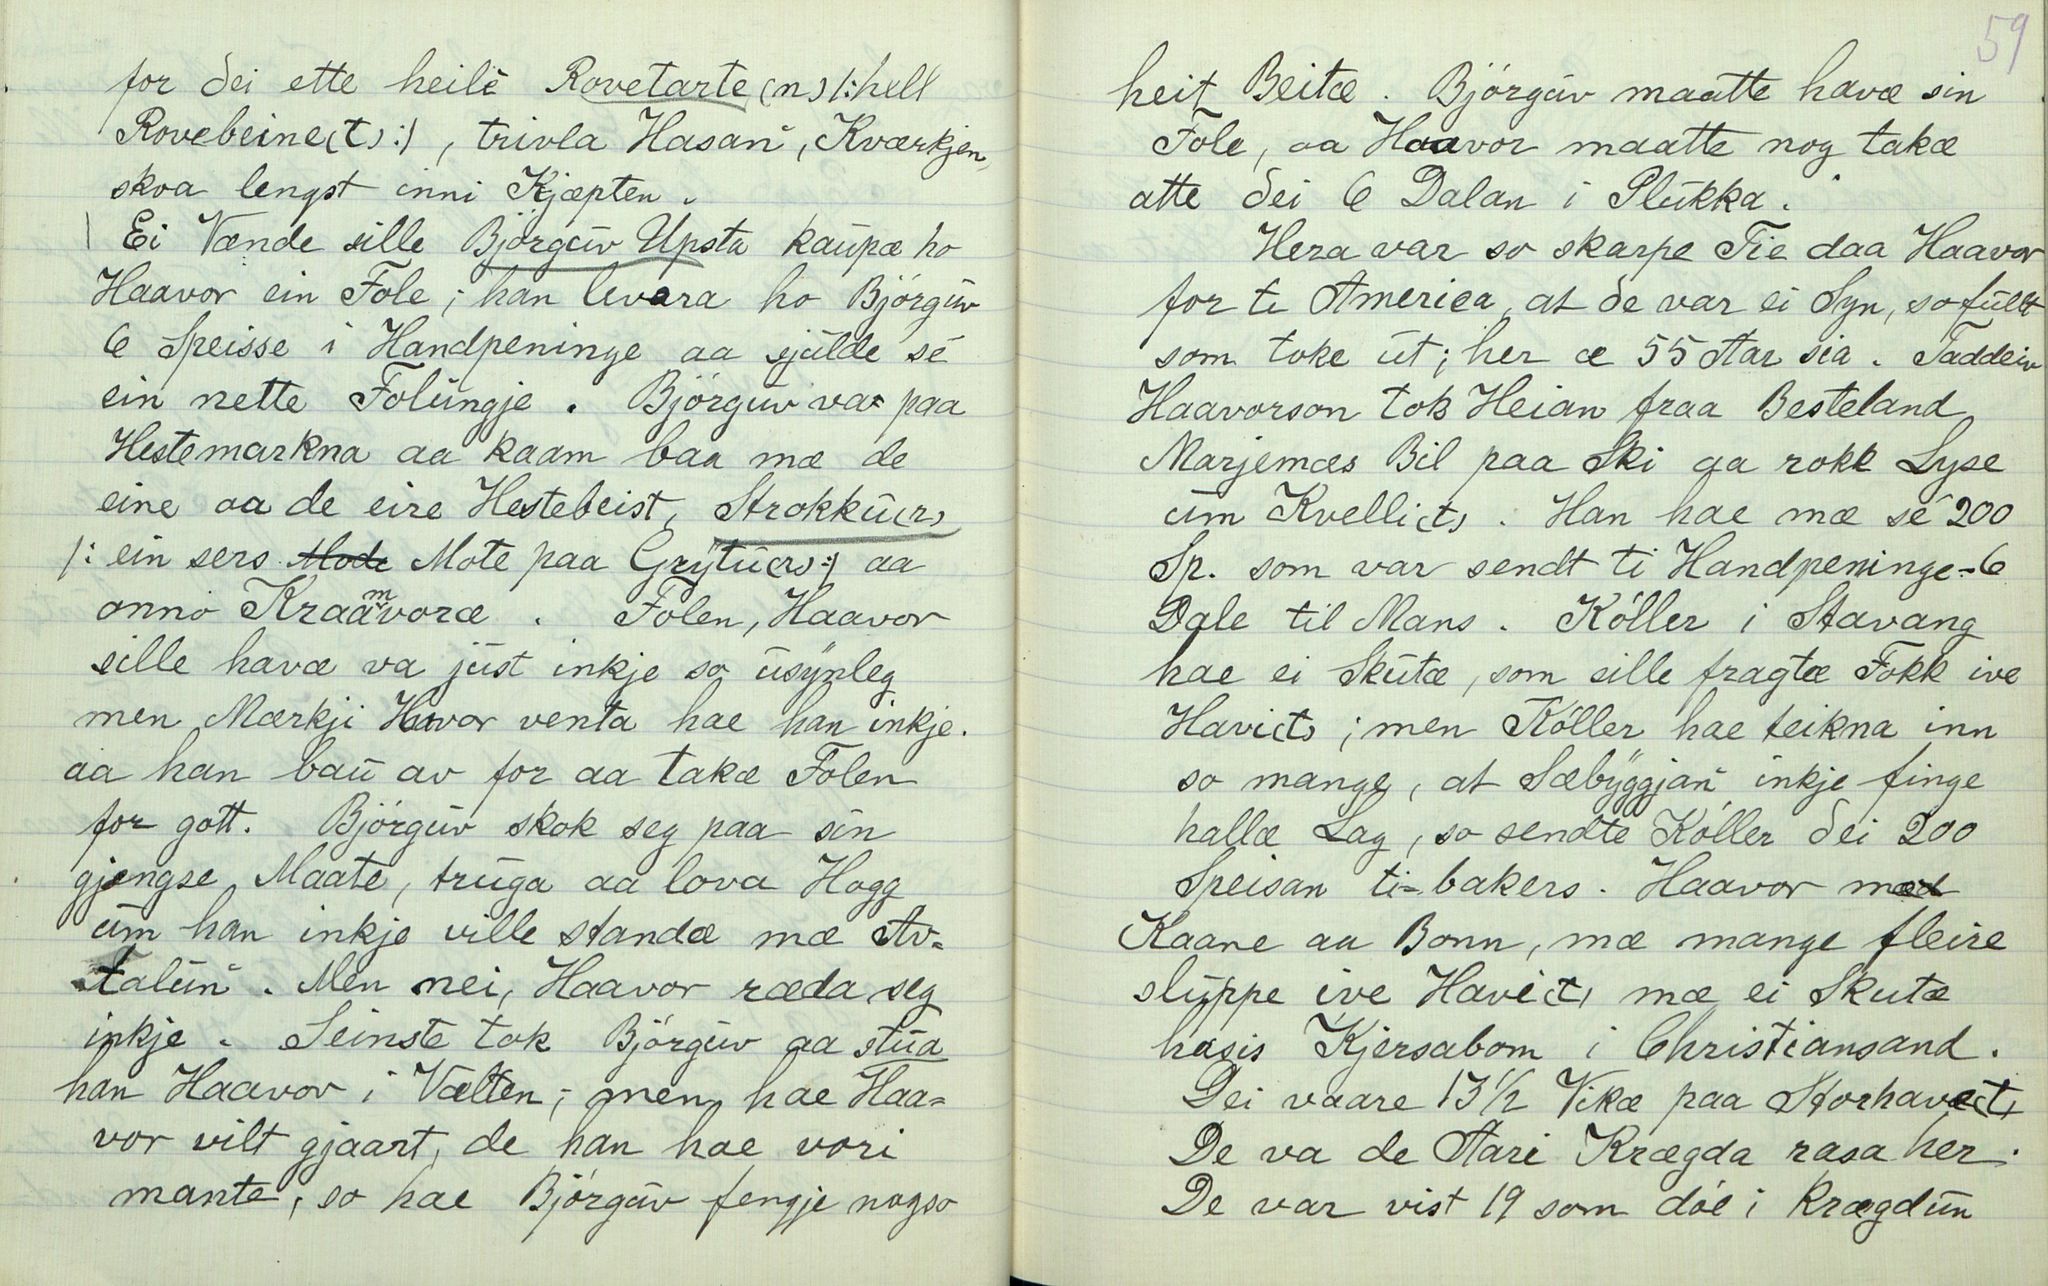 for dei ette heile Rovetarte(n) /:hell
Rovebeine(t):/, trivla Hasan, Kværkjen,
skoa lengst inni Kjæpten.
Ei Vænde sille Bjørguv Upsta kaupæ ho
Haavor ein Fole; han levera ho Bjørguv
6 Speisse i Handpeninge aa sjulde sé
ein nette Folungje. Bjørguv var paa
Hestemarkna aa kaam baa mæ de
eine aa de eire Hestebeist, Strokku(r)
/: ein sers Mode Mote paa Grytu(r):/ aa
anno Kraamvoræ. Folen, Haavor
sille havæ va just inkje so usynleg
men Mærkji Haavor venta hae han inkje.
aa han bau av for aa takæ Folen
for gott. Bjørguv skok seg paa sin
gjengse Maate, truga aa lova Hogg
um han inkje ville standæ mæ Av=
talun. Men nei, Haavor ræda seg
inkje. Seinste tok Bjørguv aa stua
han Haavor i Vælten; men hae Haa=
vor vilt gjaart, de han hae vori
mante, so hae Bjørguv fengje nogso
59
heit Beitæ. Bjørguv maatte havæ sin
Fole, aa Haavor maatte nog takæ
atte dei 6 Dalan i Plukka.
Hera var so skarpe Tie daa Haavor
for te America, at de var ei Syn, so fullt
som toke ut; her æ 55 Aar sia. Taddeiv
Haavorson tok Heian fraa Besteland
Marjemæs Bil paa Ski aa rokk Lyse
um Kvelli(t). Han hae mæ sé 200
Sp. som var sendt ti Handpeninge - 6
Dale til Mans. Køller i Stavang
hae ei Skutæ, som sille fragtæ Fokk ive
Havi(t); men Køller hae teikna inn
so mange, at Sæbyggjan inkje finge
hallæ Lag, so sendte Køller dei 200
Speisan ti-bakers. Haavor med
Kaane aa Bonn, mæ mange fleire
sluppe ive Have(t) mæ ei Skutæ
hasis Kjersabom i Christiansand.
Dei vaare 13 1/2 Vikæ paa Storhave(t)
De va de Aari Krægda rasa her.
De var vist 19 som døe i Krægdun